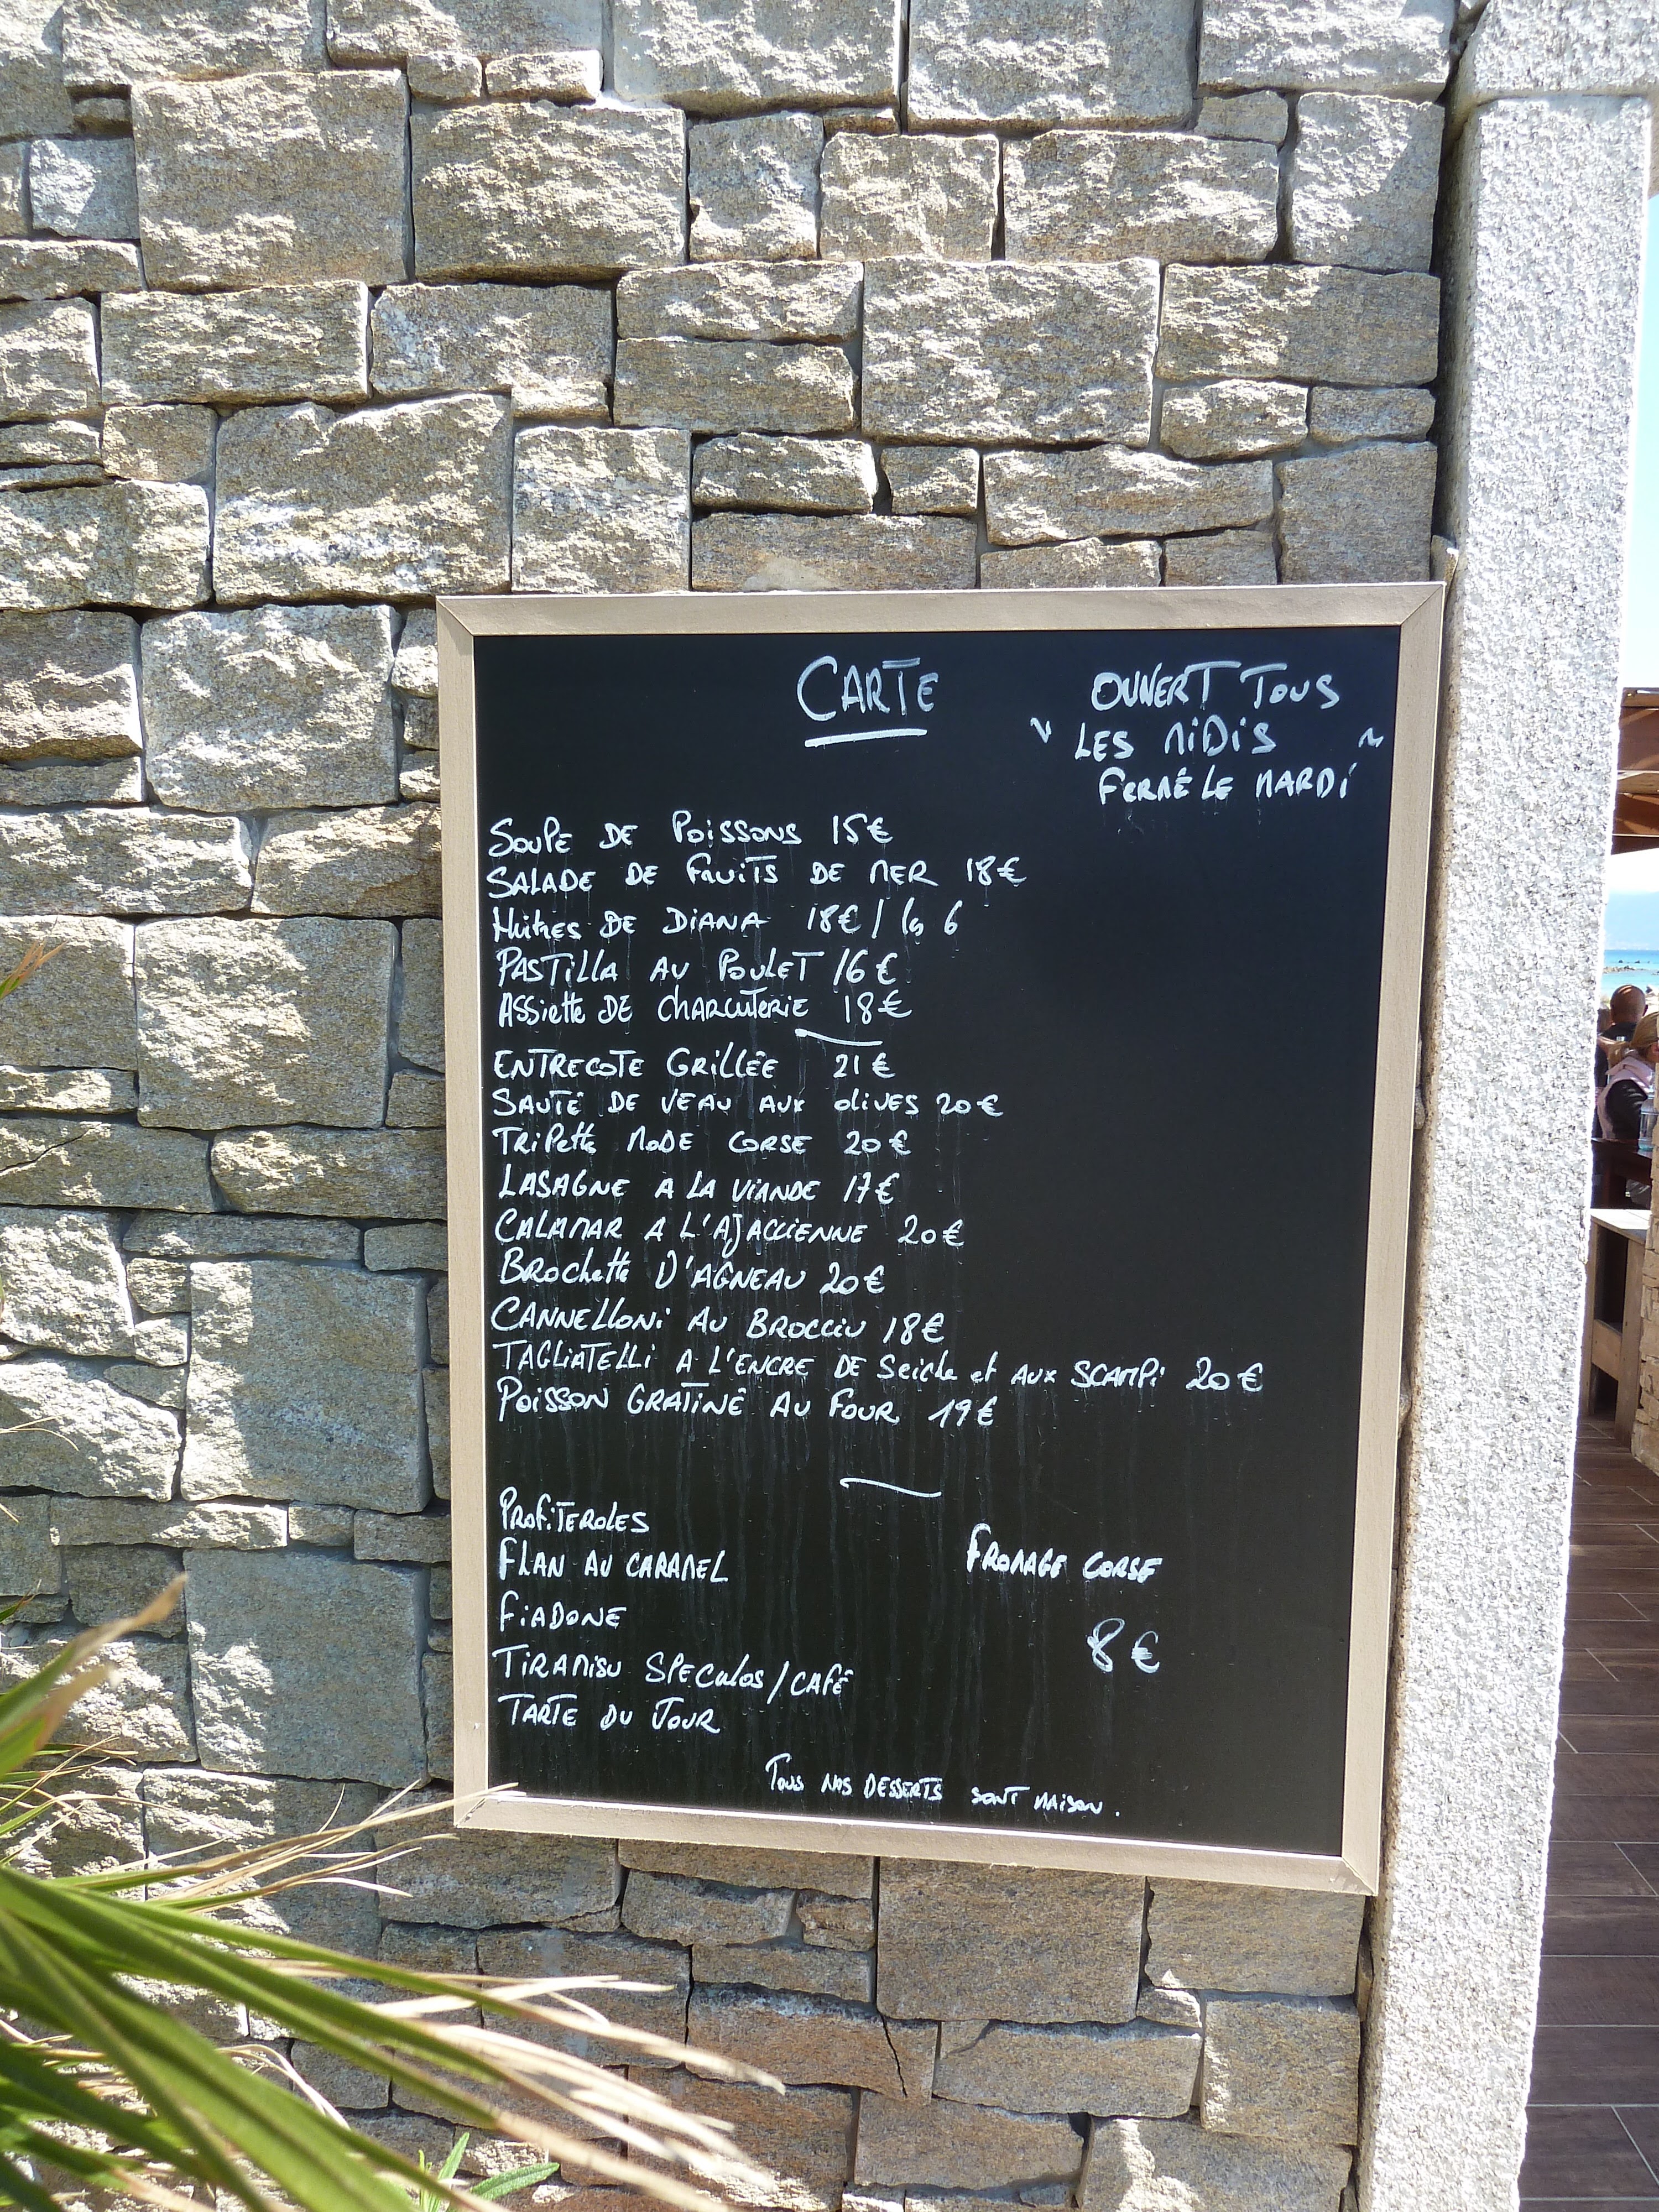 CARTE
OUVERT TOUS
LES MIDIS
FERMÉ LE MARDI
SOUPE DE POISSONS 15€
SALADE DE FRUITS DE MER 18€
HUÎTRES DE DIANA 18€ / les 6
PASTILLA AU POULET 16€
ASSIETTE DE CHARCUTERIE 18€
ENTRECOTE GRILLÉE 21€
SAUTÉ DE VEAU AUX OLIVES 20€
TRIPETTE MODE CORSE 20€
LASAGNE A LA VIANDE 17€
CALAMAR A L'AJACCIENNE 20€
BROCHETTE D'AGNEAU 20€
CANNELLONI AU BROCCIU 18€
TAGLIATELLI A L'ENCRE DE Seiche et AUX SCAMPI 20€
POISSON GRATINÉ AU FOUR 19€
PROFITEROLES
FLAN AU CARAMEL
FROMAGE CORSE
FIADONE
8€
TIRAMISU SPECULOS/CAFÉ
TARTE DU JOUR
TOUS NOS DESSERTS SONT MAISON.